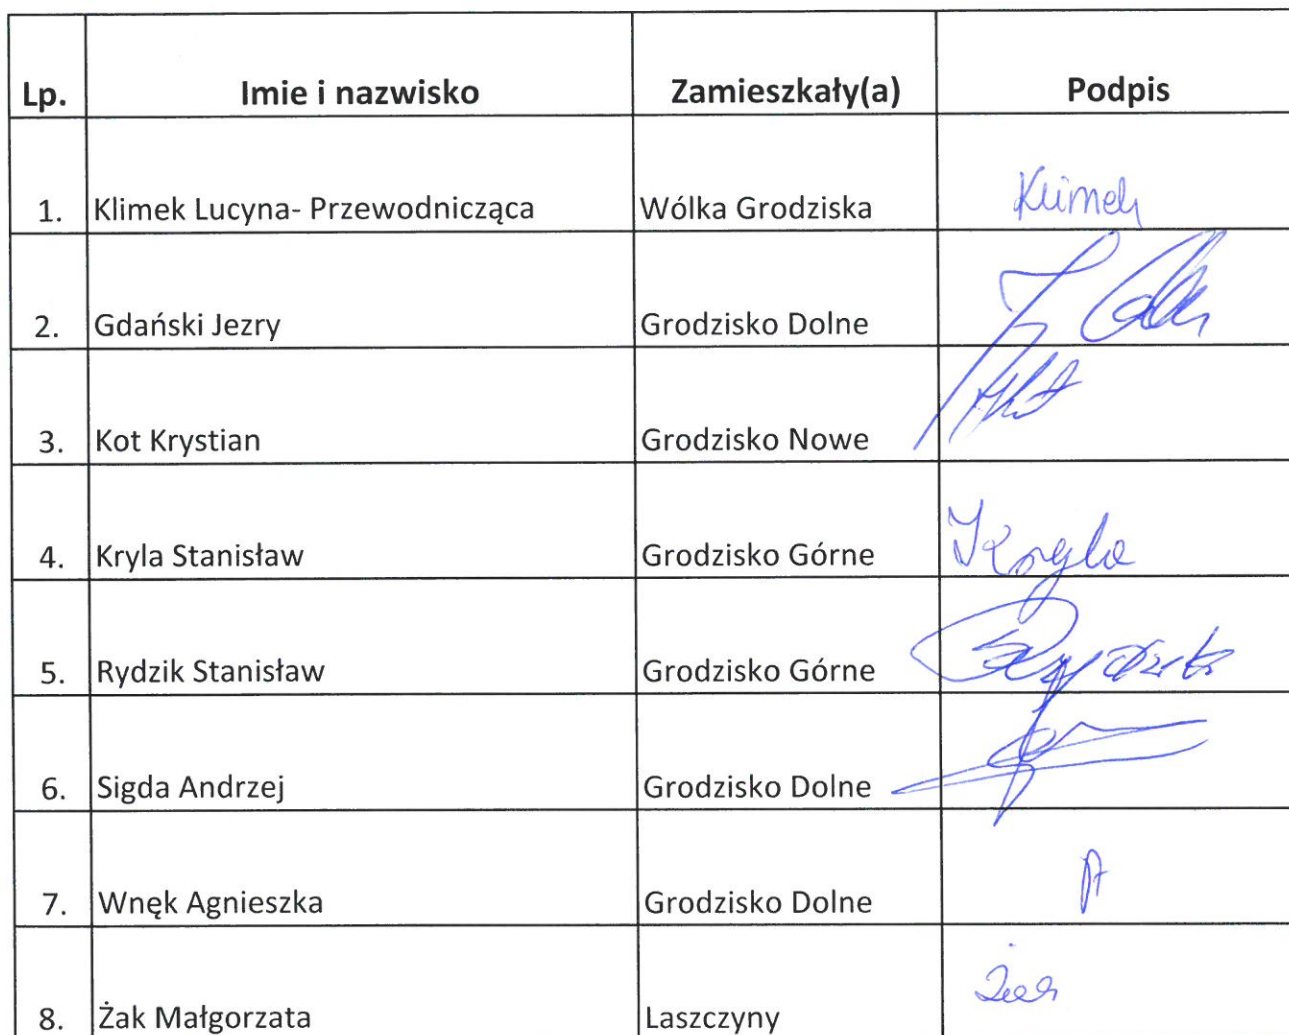 Lp. Imie i nazwisko Zamieszkały(a) Podpis
1. Klimek Lucyna- Przewodnicząca Wólka Grodziska Klimek
2. Gdański Jezry Grodzisko Dolne
3. Kot Krystian Grodzisko Nowe
4. Kryla Stanisław Grodzisko Górne Kryla
5. Rydzik Stanisław Grodzisko Górne
6. Sigda Andrzej Grodzisko Dolne
7. Wnęk Agnieszka Grodzisko Dolne
8. Żak Małgorzata Laszczyny Żak